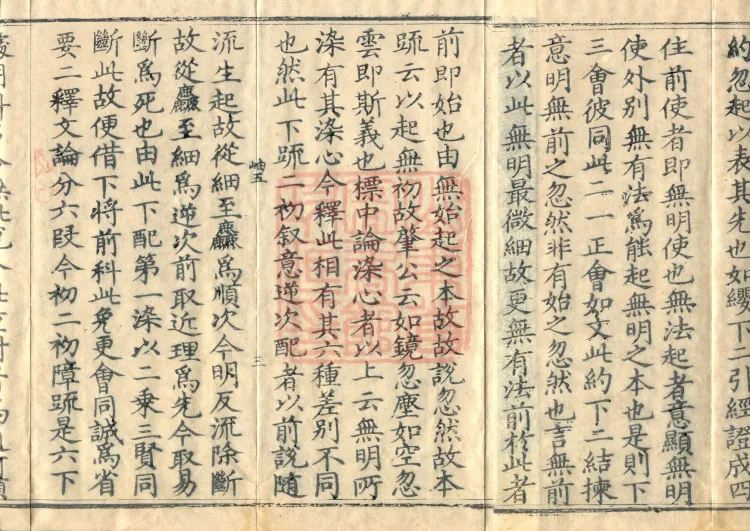 約忽起以表其先也如纓下二引經證成四
住前使者即無明使也無法起者意顯無明
使外別無有法爲能起無明之本也是則下
三會彼同此二一正會如文此約下二結揀
意明無前之忽然非有始之忽然也言無前
者以此無明最微細故更無有法前於此者
前即始也由無始起之本故故説忽然故本
疏云以起無初故肇公云如鏡忽塵如空忽
雲即斯義也標中論染心者以上云無明所
染有其染心今釋此相有其六種差別不同
也然此下疏二初叙意逆次配者以前説隨
岫五
三
流生起故從細至麤爲順次今明反流除斷
故從麤至細爲逆次前取近理爲先今取易
斷爲死也由此下配第一染以二乘三賢同
斷此故便借下將前科此免更會同誠爲省
要二釋文論分六段今初二初障疏是六下